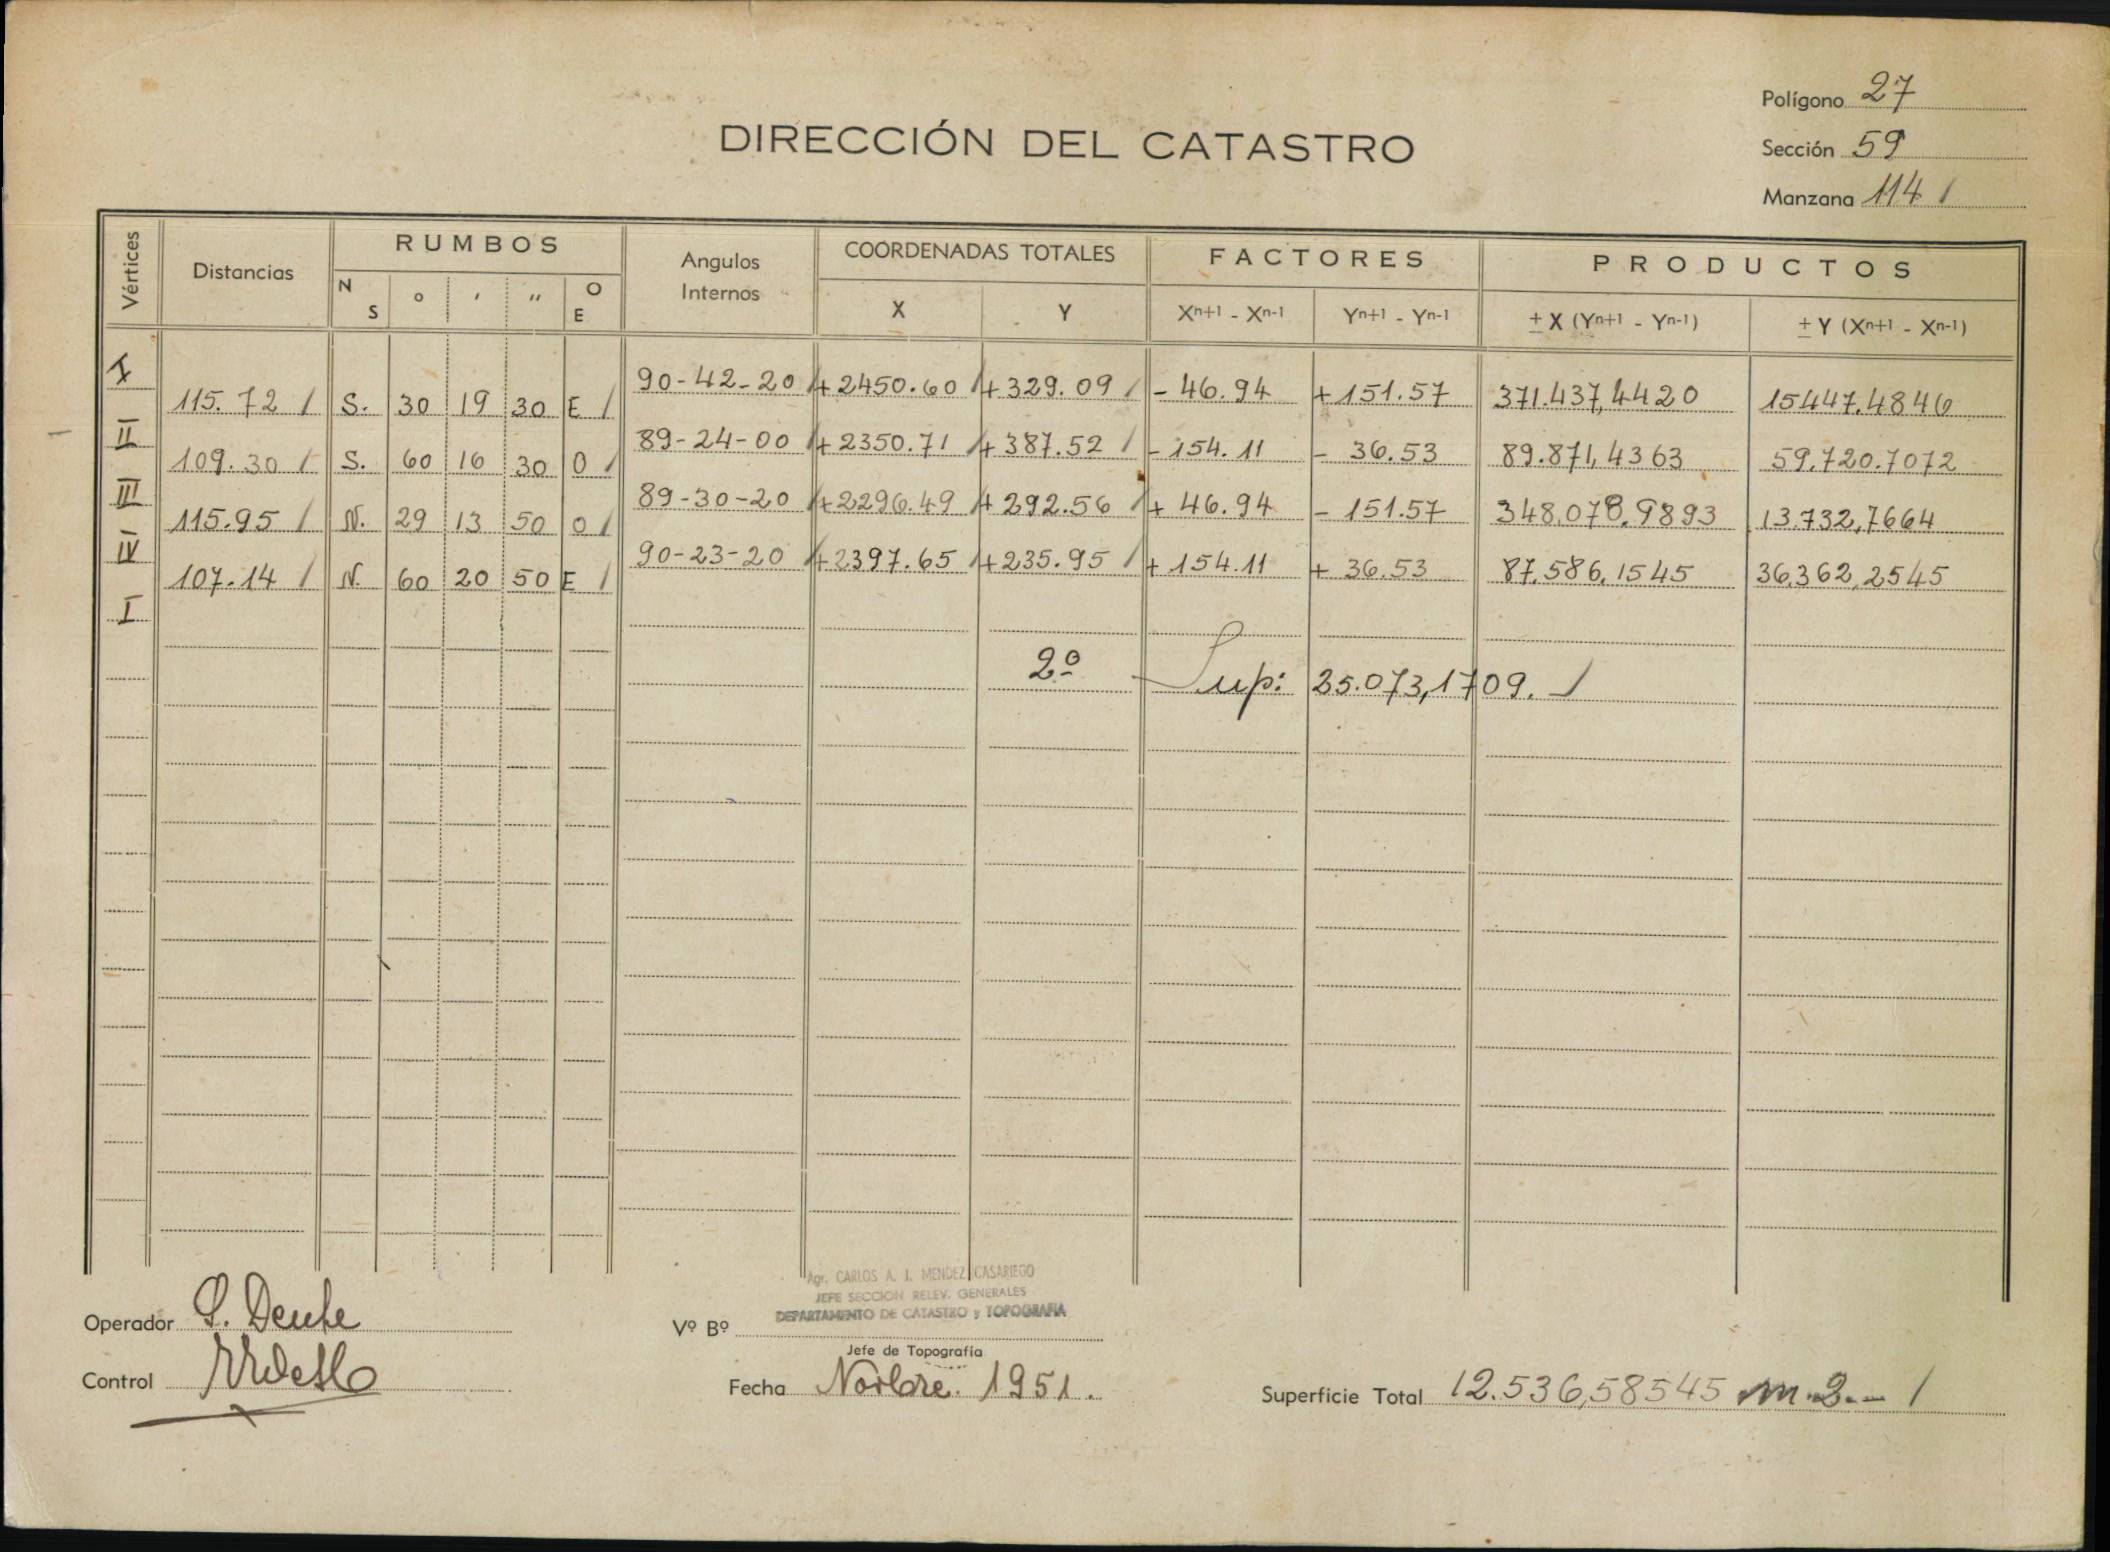 Polígono 27
DIRECCIÓN DEL CATASTRO
Sección 59
Manzana 114 /
Vértices Distancias RUMBOS Angulos Internos COORDENADAS TOTALES FACTORES PRODUCTOS
N S ° ' " O E X Y Xn+1 - Xn-1 Yn+1 - Yn-1 ± X (Yn+1 - Yn-1) ± Y (Xn+1 - Xn-1)
I 90-42-20 / +2450.60 / +329.09 / - 46.94 + 151.57 371.437,4420 15447.4846
115.72 / S. 30 19 30 E /
II 89-24-00 / +2350.71 / + 387.52 / - 154.11 - 36.53 89.871,4363 59.720.7072
109.30 / S. 60 16 30 O /
III 89-30-20 / +2296.49 / + 292.56 / + 46.94 - 151.57 348.078.9893 13.732,7664
115.95 / N. 29 13 50 O /
IV 90-23-20 / +2397.65 / +235.95 / + 154.11 + 36.53 87.586,1545 36.362,2545
107.14 / N. 60 20 50 E /
I
2º Sup: 25.073,1709. /
Agr. CARLOS A. I. MENDEZ CASARIEGO
JEFE SECCION RELEV. GENERALES
DEPARTAMENTO DE CATASTRO y TOPOGRAFIA
Operador
Vº Bº
Jefe de Topografía
Control
Fecha Novbre. 1951.
Superficie Total 12.536,58545 m.2.- /